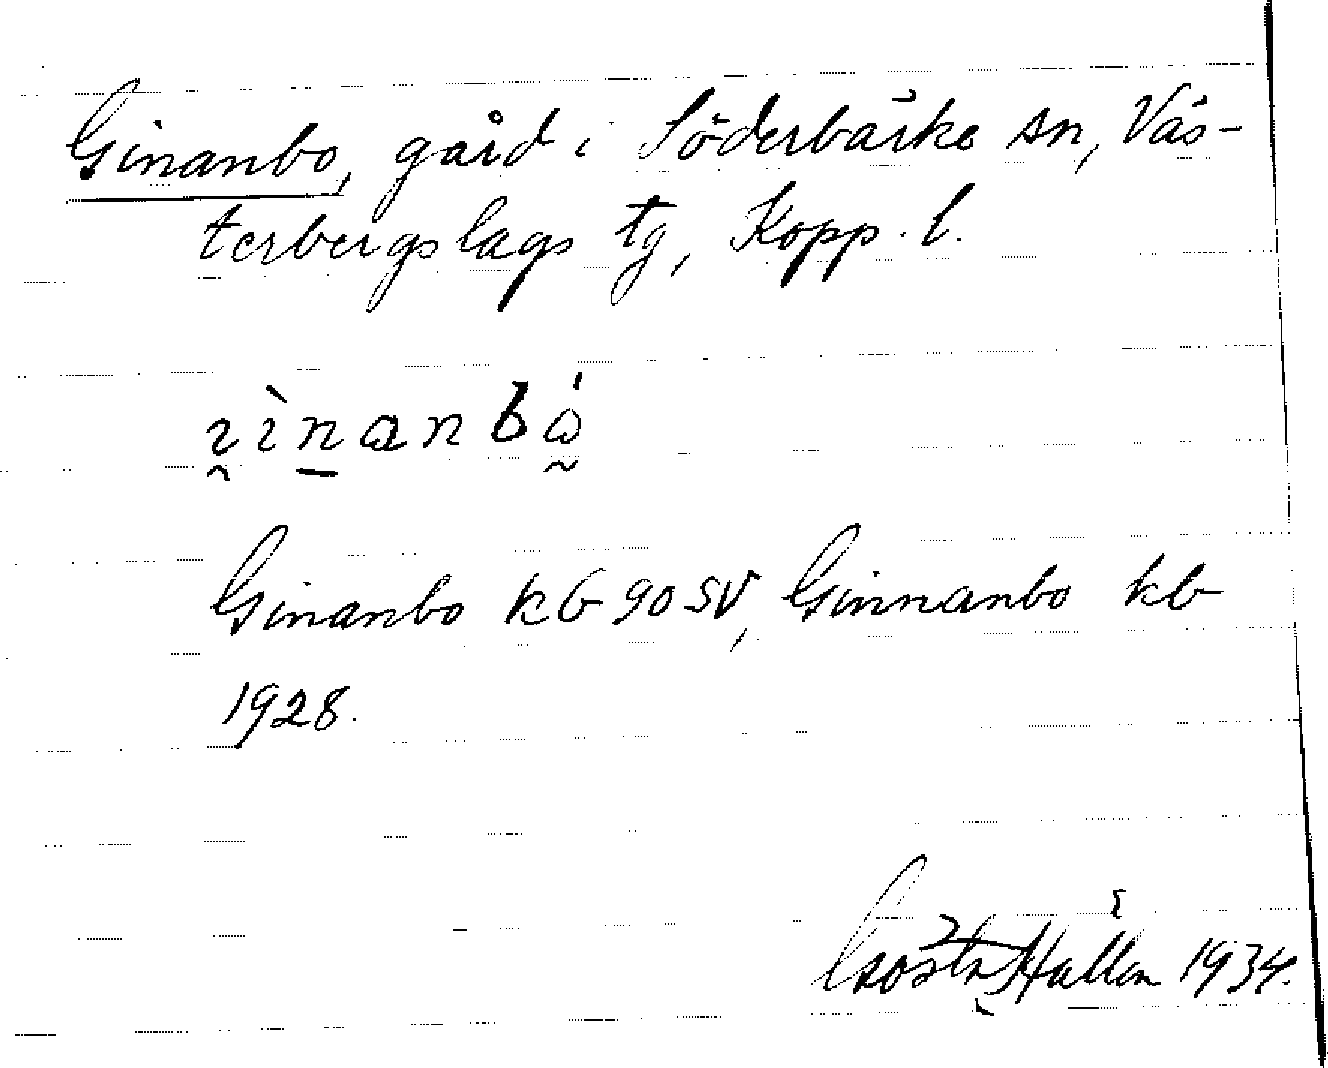 Ginanbo, gård i Söderbärke sn, Väs-
terbergslags tg, Kopp. l.
Ginanbo kb 90 SV, Ginnanbo kb
1928.
Gösta Hallén 1934.